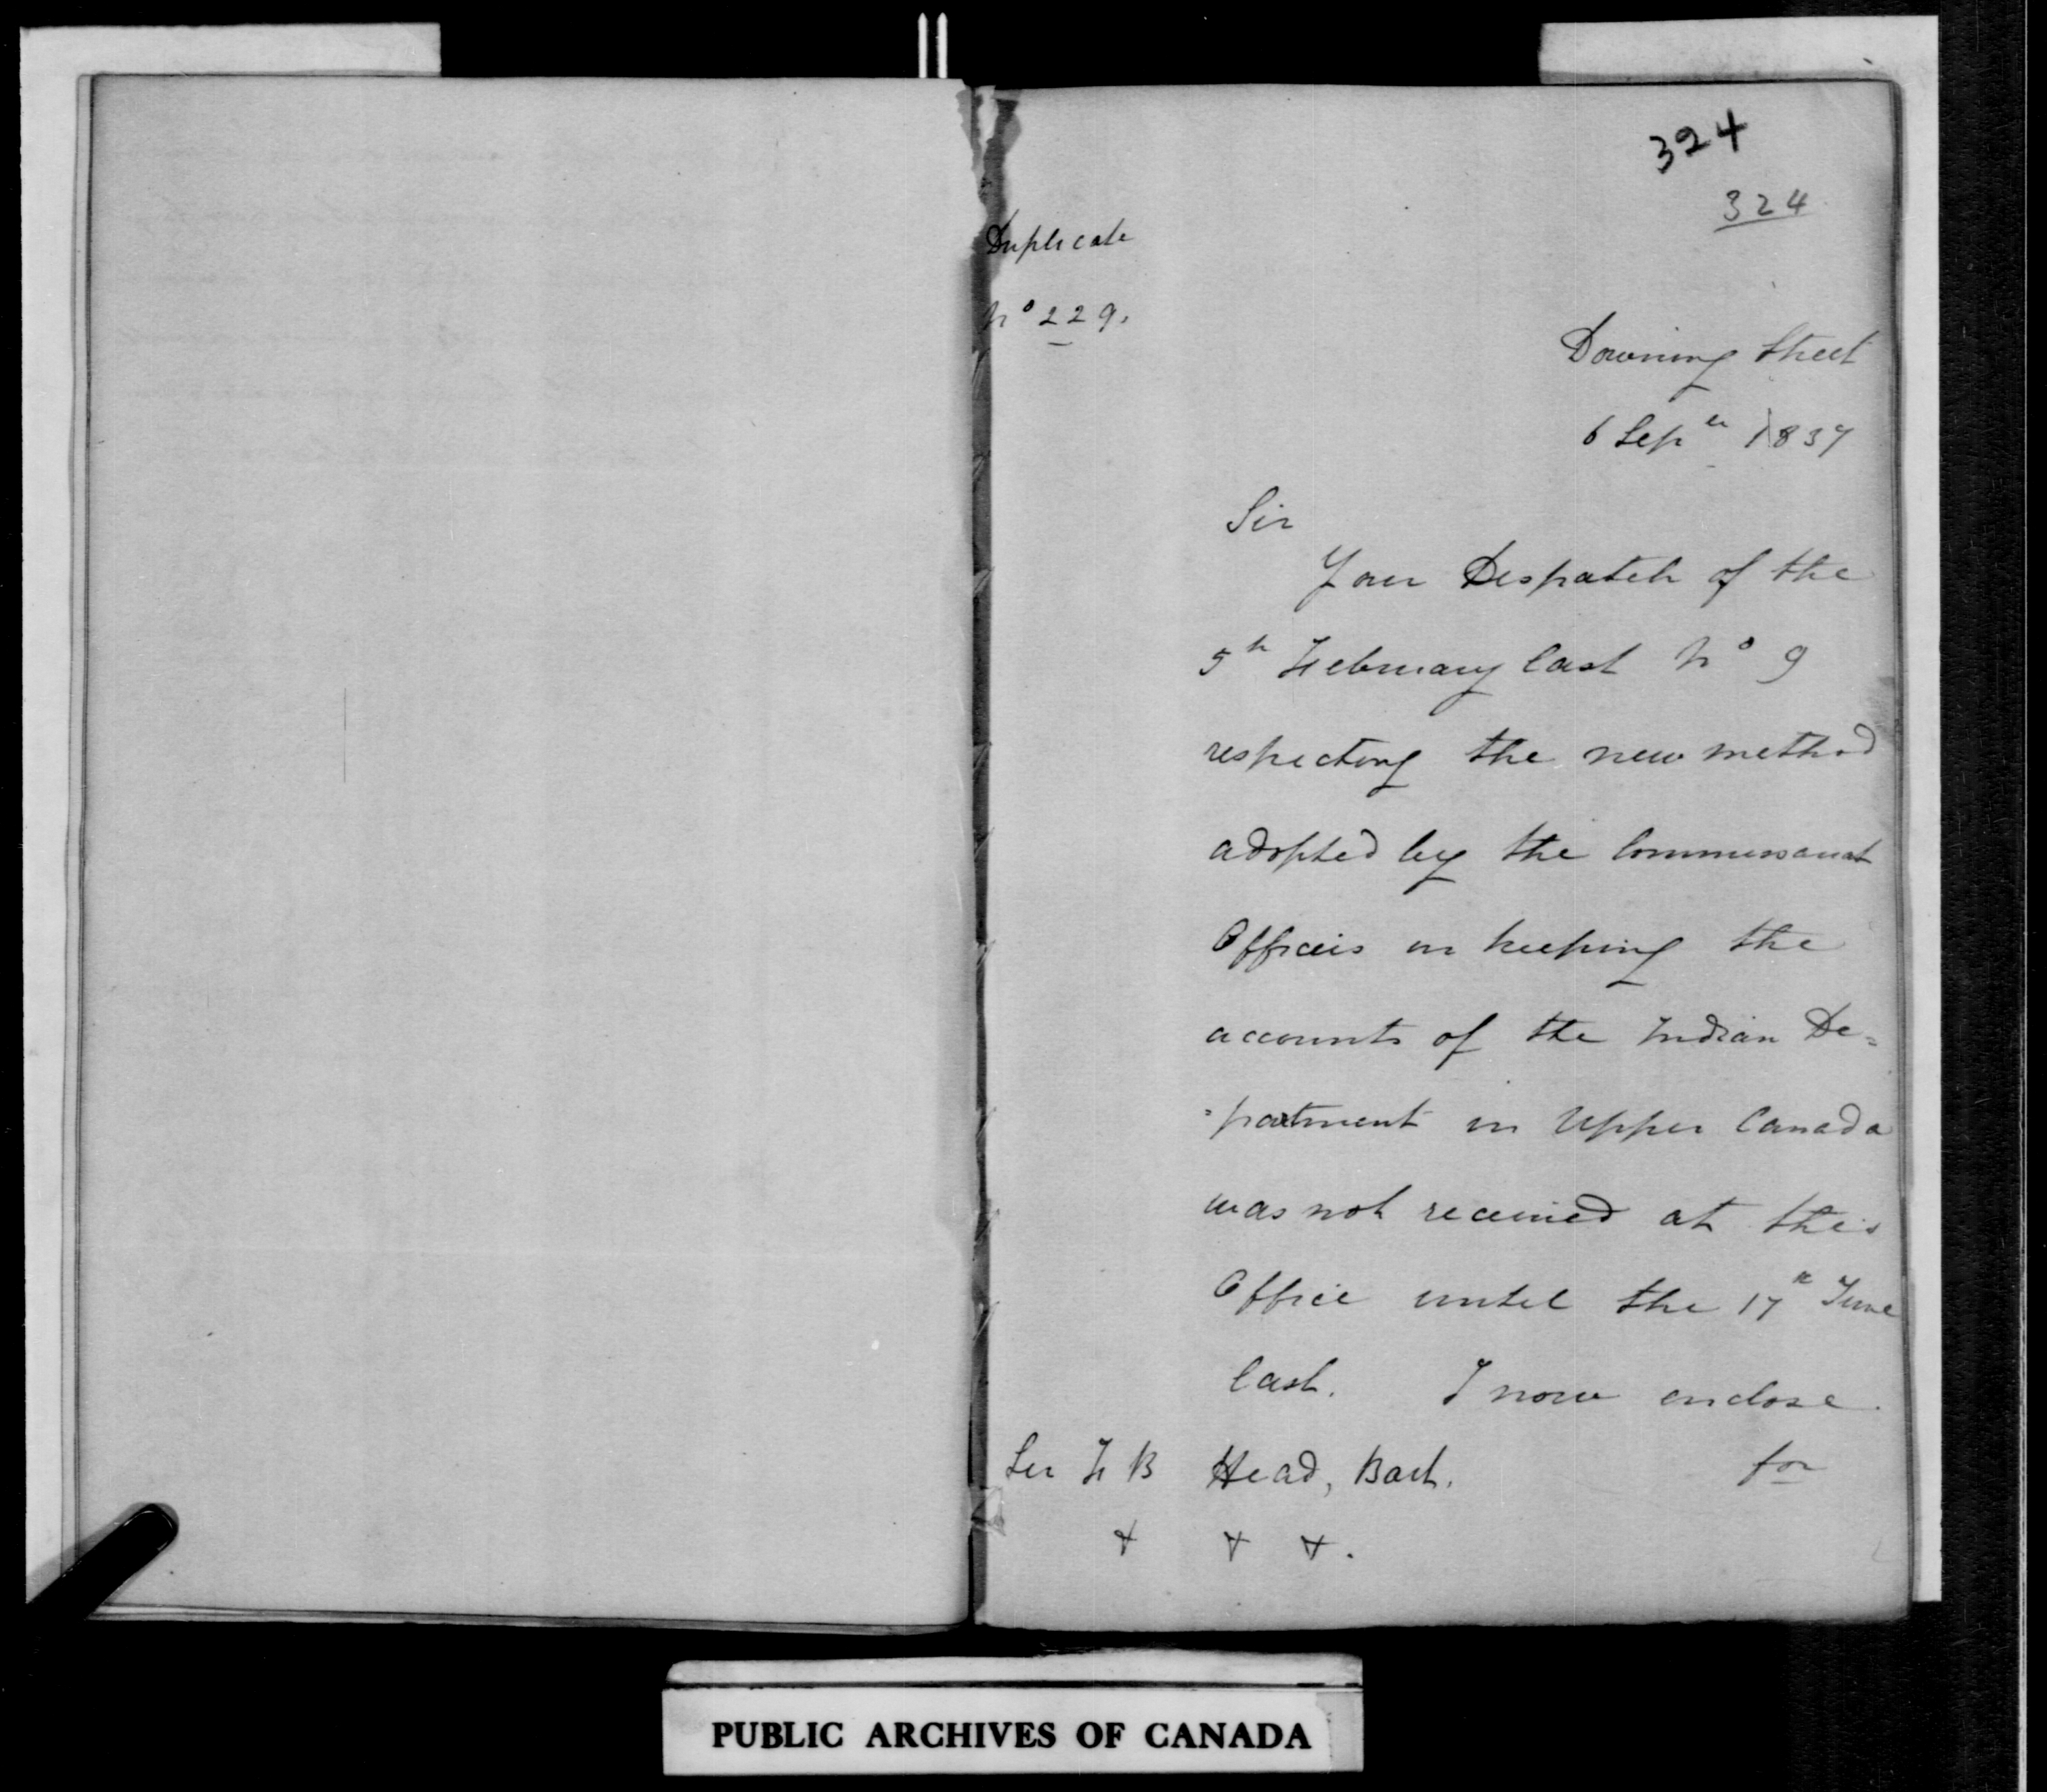 324
324
Duplicate
No 229.
Downing Street
6 Sepr 1837
Sir
Your Despatch of the
5th February last No 9
respecting the new method
adopted by the Commissariat
Officers in keeping the
accounts of the Indian De=
=partment in Upper Canada
was not received at this
Office until the 17th June
last. I now enclose
for
Sir F B Head, Bart.
& & &.
PUBLIC ARCHIVES OF CANADA